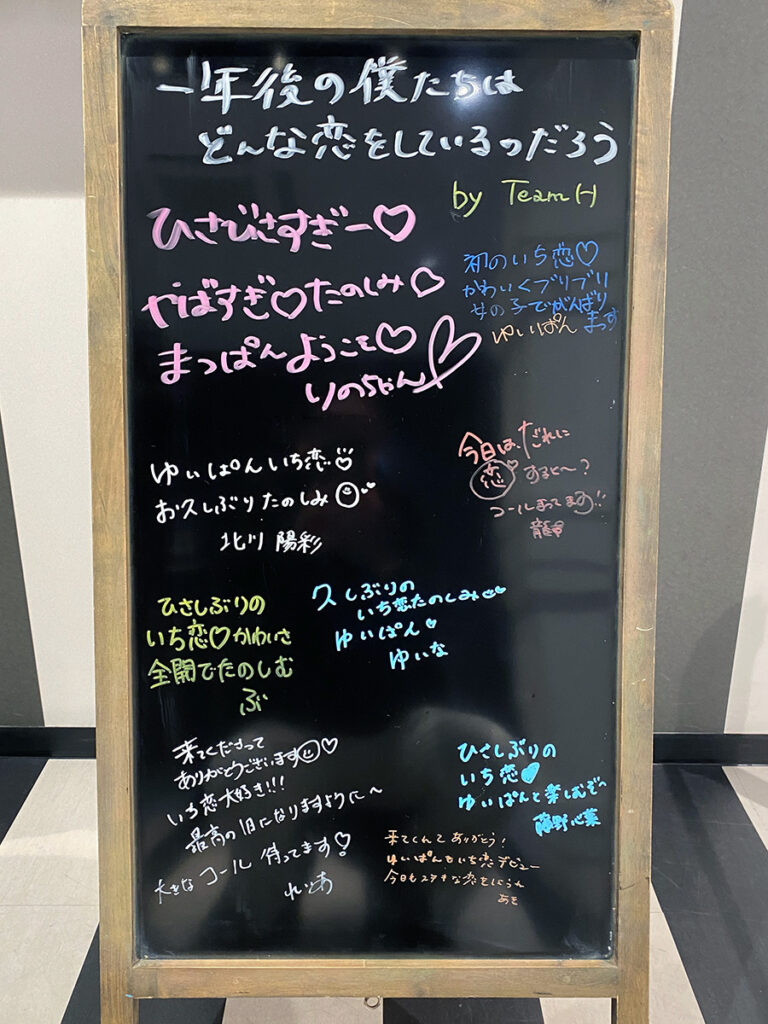 一年後の僕たちは
どんな恋をしているのだろう
by Team H
ひさびさすぎー♡
やばすぎ♡たのしみ♡
まっぱんようこそ♡
りのちゃん♡
初のいち恋♡
かわいくブリブリ
女の子でがんばり
まっす
ゆいぱん
ゆいぱんいち恋
お久しぶりたのしみ
北川 陽彩
今日は、だれに
恋♥すると〜?
コールまってます!!
ひさしぶりの
いち恋♡かわいさ
全開でたのしむ
ぶ
久しぶりの
いち恋たのしみ
ゆいぱん♡
ゆいな
来てくださって
ありがとうございます♡
いち恋大好き!!!
最高の1日になりますように〜
大きな コール 待ってます♡
れいあ
ひさしぶりの
いち恋♥
ゆいぱんと楽しむぞ〜
藤野心葉
来てくれてありがとう!
ゆいぱんもいち恋デビュー
今日もステキな恋をしようね